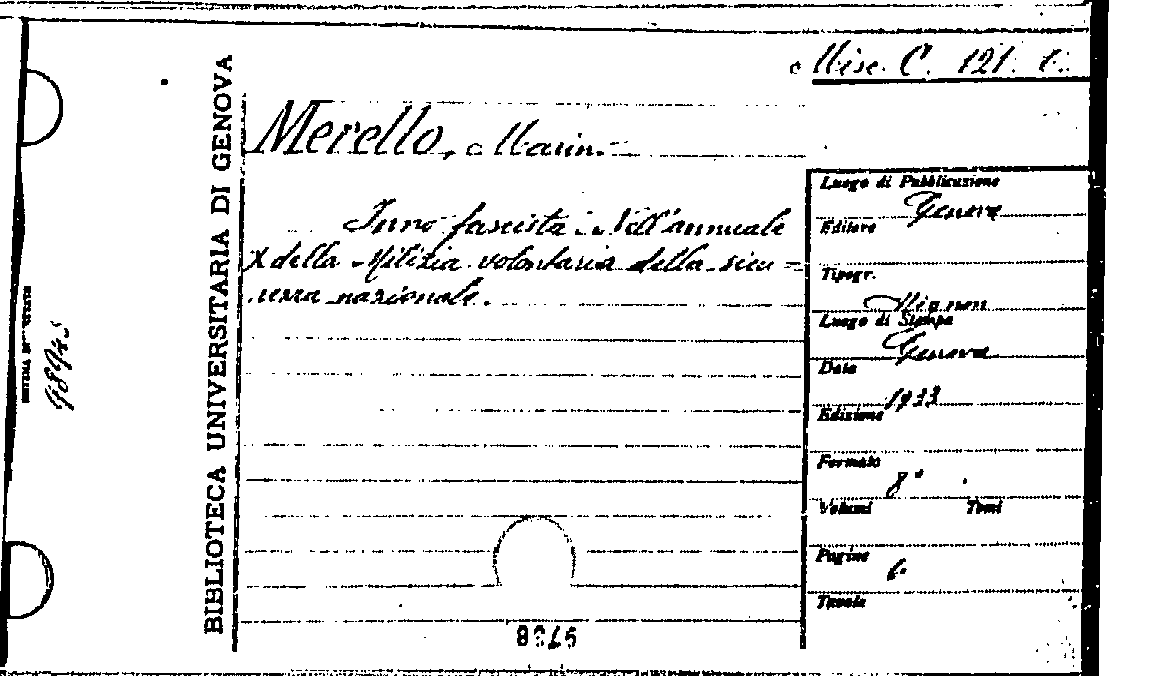 Misc. C. 121. 6.
BIBLIOTECA UNIVERSITARIA DI GENOVA
Merello, Mario.
Inno fascista. Nell'annuale
X della Milizia volontaria della sicu-
rezza nazionale.
Luogo di Pubblicazione
Genova
Editore
Tipogr.
Luogo di Stampa
Genova
Data
1933
Edizione
Formato
8°
Volumi Tomi
Pagine
6.
Tavole